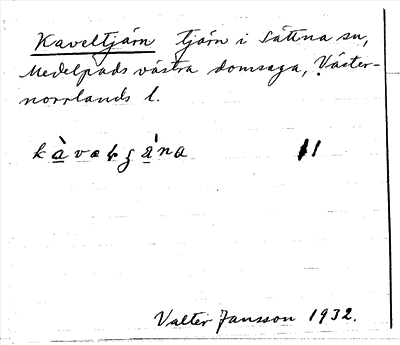 Kaveltjärn tjärn i Sättna sn,
Medelpads västra domsaga, Väster-
norrlands l.
11
Valter Jansson 1932.